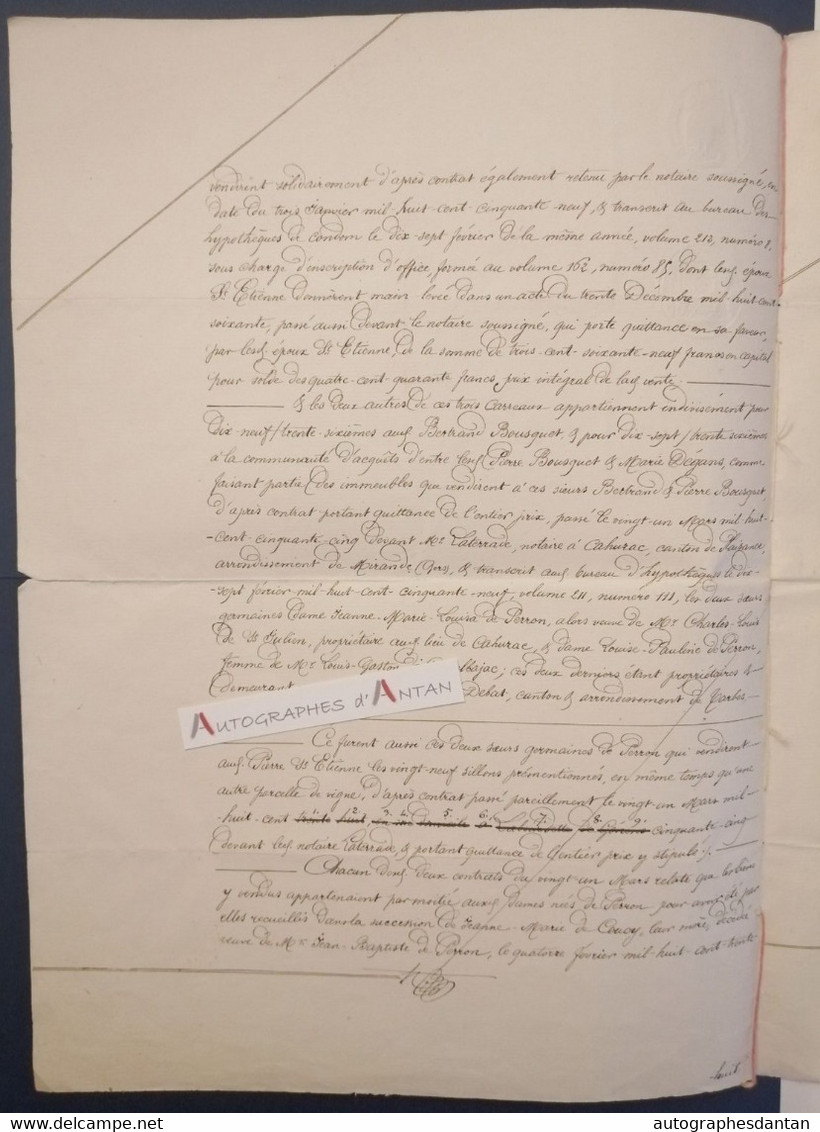 vendirent solidairement d'après contrat également retenu par le notaire soussigné, en
date du trois Janvier mil huit-cent cinquante-neuf & transcrit au bureau des
hypothèques de Condom le dix-sept février de la même année, volume 213, numéro 8,
sous charge d'inscription d'office, formée au volume 162, numéro 85, dont lesd. époux
St. Etienne donnèrent main levée dans un acte du trente Décembre mil-huit-cent-
soixante, passé aussi devant le notaire soussigné, qui porte quittance en sa faveur,
par lesd. époux St. Etienne, de la somme de trois-cent-soixante-neuf francs en capital
pour solde des quatre-cent-quarante francs, prix intégral de lad. vente.
& les deux autres de ces trois carreaux appartiennent indivisément pour
dix-neuf/trente-sixièmes aud. Bertrand Bousquet, & pour dix-sept/trente sixièmes
à la communauté d'acquêts d'entre lesd. Pierre Bousquet & Marie Dégans, comme
faisant partie des immeubles que vendirent à ces sieurs Bertrand & Pierre Bousquet,
d'après contrat portant quittance de l'entier prix, passé le vingt-un Mars mil huit-
-cent-cinquante-cinq devant Me. Laterrade, notaire à Cahuzac, canton de Plaisance,
arrondissement de Mirande (Gers), & transcrit aud. bureau d'hypothèques le dix-
-sept février mil-huit-cent-cinquante-neuf, volume 211, numéro 111, les deux sœurs
germaines dame Jeanne-Marie-Louisa de Perron, alors veuve de Mr. Charles-Louis
de St. Julien, propriétaire aud. lieu de Cahuzac, & dame Louise-Pauline de Perron,
femme de Mr. Louis-Gaston ; ces deux derniers étant propriétaires &
demeurant Debat, canton & arrondissement de Tarbes.
AUTOGRAPHES d'ANTAN
Ce furent aussi ces deux sœurs germaines de Perron qui vendirent
aud. Pierre St. Etienne les vingt-neuf sillons prémentionnés, en même temps qu'une
autre parcelle de vigne, d'après contrat passé pareillement le vingt-un Mars mil-
1. 2. 3. 4. 5. 6. 7. 8. 9.
huit-cent trente huit cinquante-cinq
devant led. notaire Laterrade, & portant quittance de l'entier prix y stipulé.
Chacun desd. deux contrats du vingt-un Mars relate que les biens
y vendus appartenaient par moitié auxd. dames nées de Perron pour avoir été par
elles recueillis dans la succession de Jeanne-Marie de Coucy, leur mère, décédée
veuve de Mr. Jean-Baptiste de Perron, le quatorze février mil-huit-cent-trente
-huit
autographesdantan